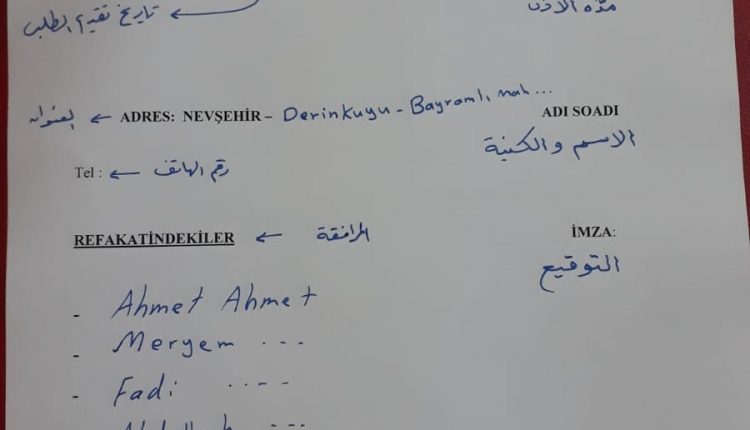 تاريخ تقديم الطلب ←
مدة الاذن
العنوان ← ADRES: NEVŞEHİR – Derinkuyu – Bayramlı mah ...
ADI SOADI
الاسم والكنية
Tel : ← رقم الهاتف
REFAKATİNDEKİLER ← المرافقة
İMZA:
التوقيع
- Ahmet Ahmet
- Meryem ...
- Fadi ....